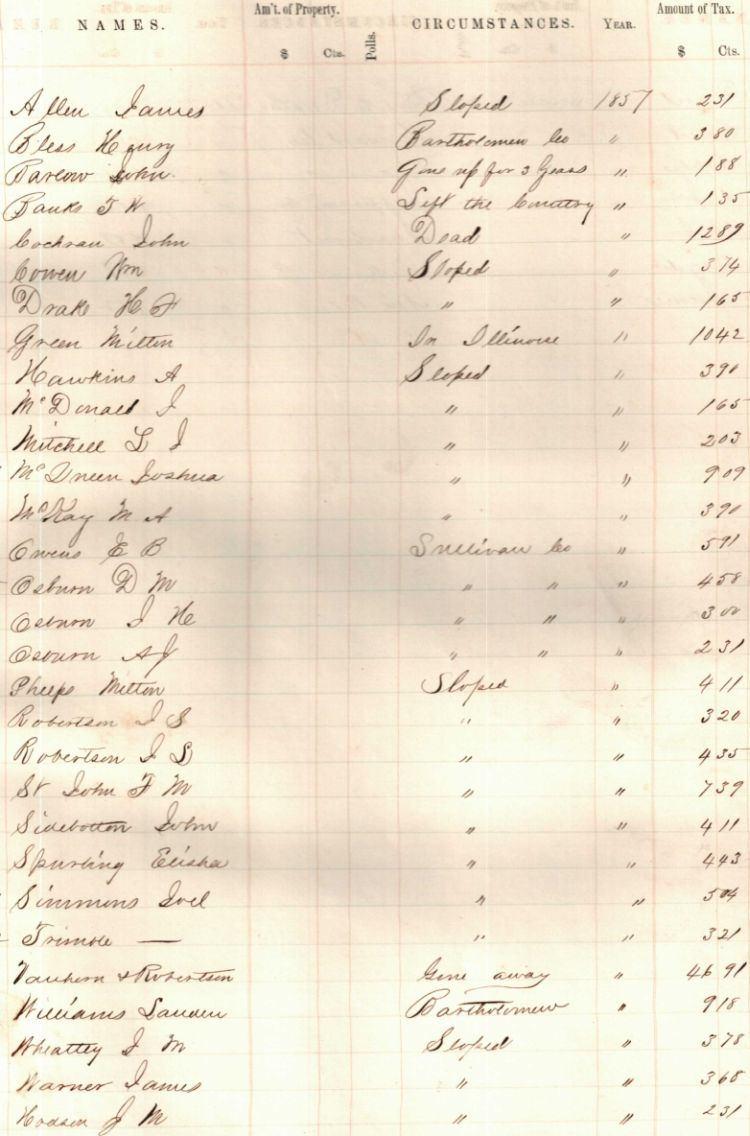 NAMES. Am't. of Property. $ Cts. Polls. CIRCUMSTANCES. YEAR. Amount of Tax. $ Cts.
Allen James Sloped 1857 231
Bless Henry Bartholomew Co " 380
Barlow John Gone up for 3 Years " 188
Banks T W Left the Country " 135
Cochran John Dead " 1289
Cowen Wm Sloped " 374
Drake H F " " 165
Green Milton In Illinoise " 1042
Hawkins A Sloped " 390
McDonald J " " 165
Mitchell L J " " 203
Joshua " " 909
McKay M A " " 390
Owens E B Sullivan Co " 591
Osburn D M " " " 458
Osburn J H " " " 300
Osburn A J " " " 231
Phelps Milton Sloped " 411
Robertson J S " " 320
Robertson J D " " 435
St John F M " " 739
Sidebotton John " " 411
Spurling Elisha " " 443
Simmons Joel " " 504
Trimble — " " 321
Vanhorn & Robertson Gone away " 4691
Williams Landen Bartholomew " 918
Wheatley J M Sloped " 378
Warner James " " 368
Hodson J M " " 231